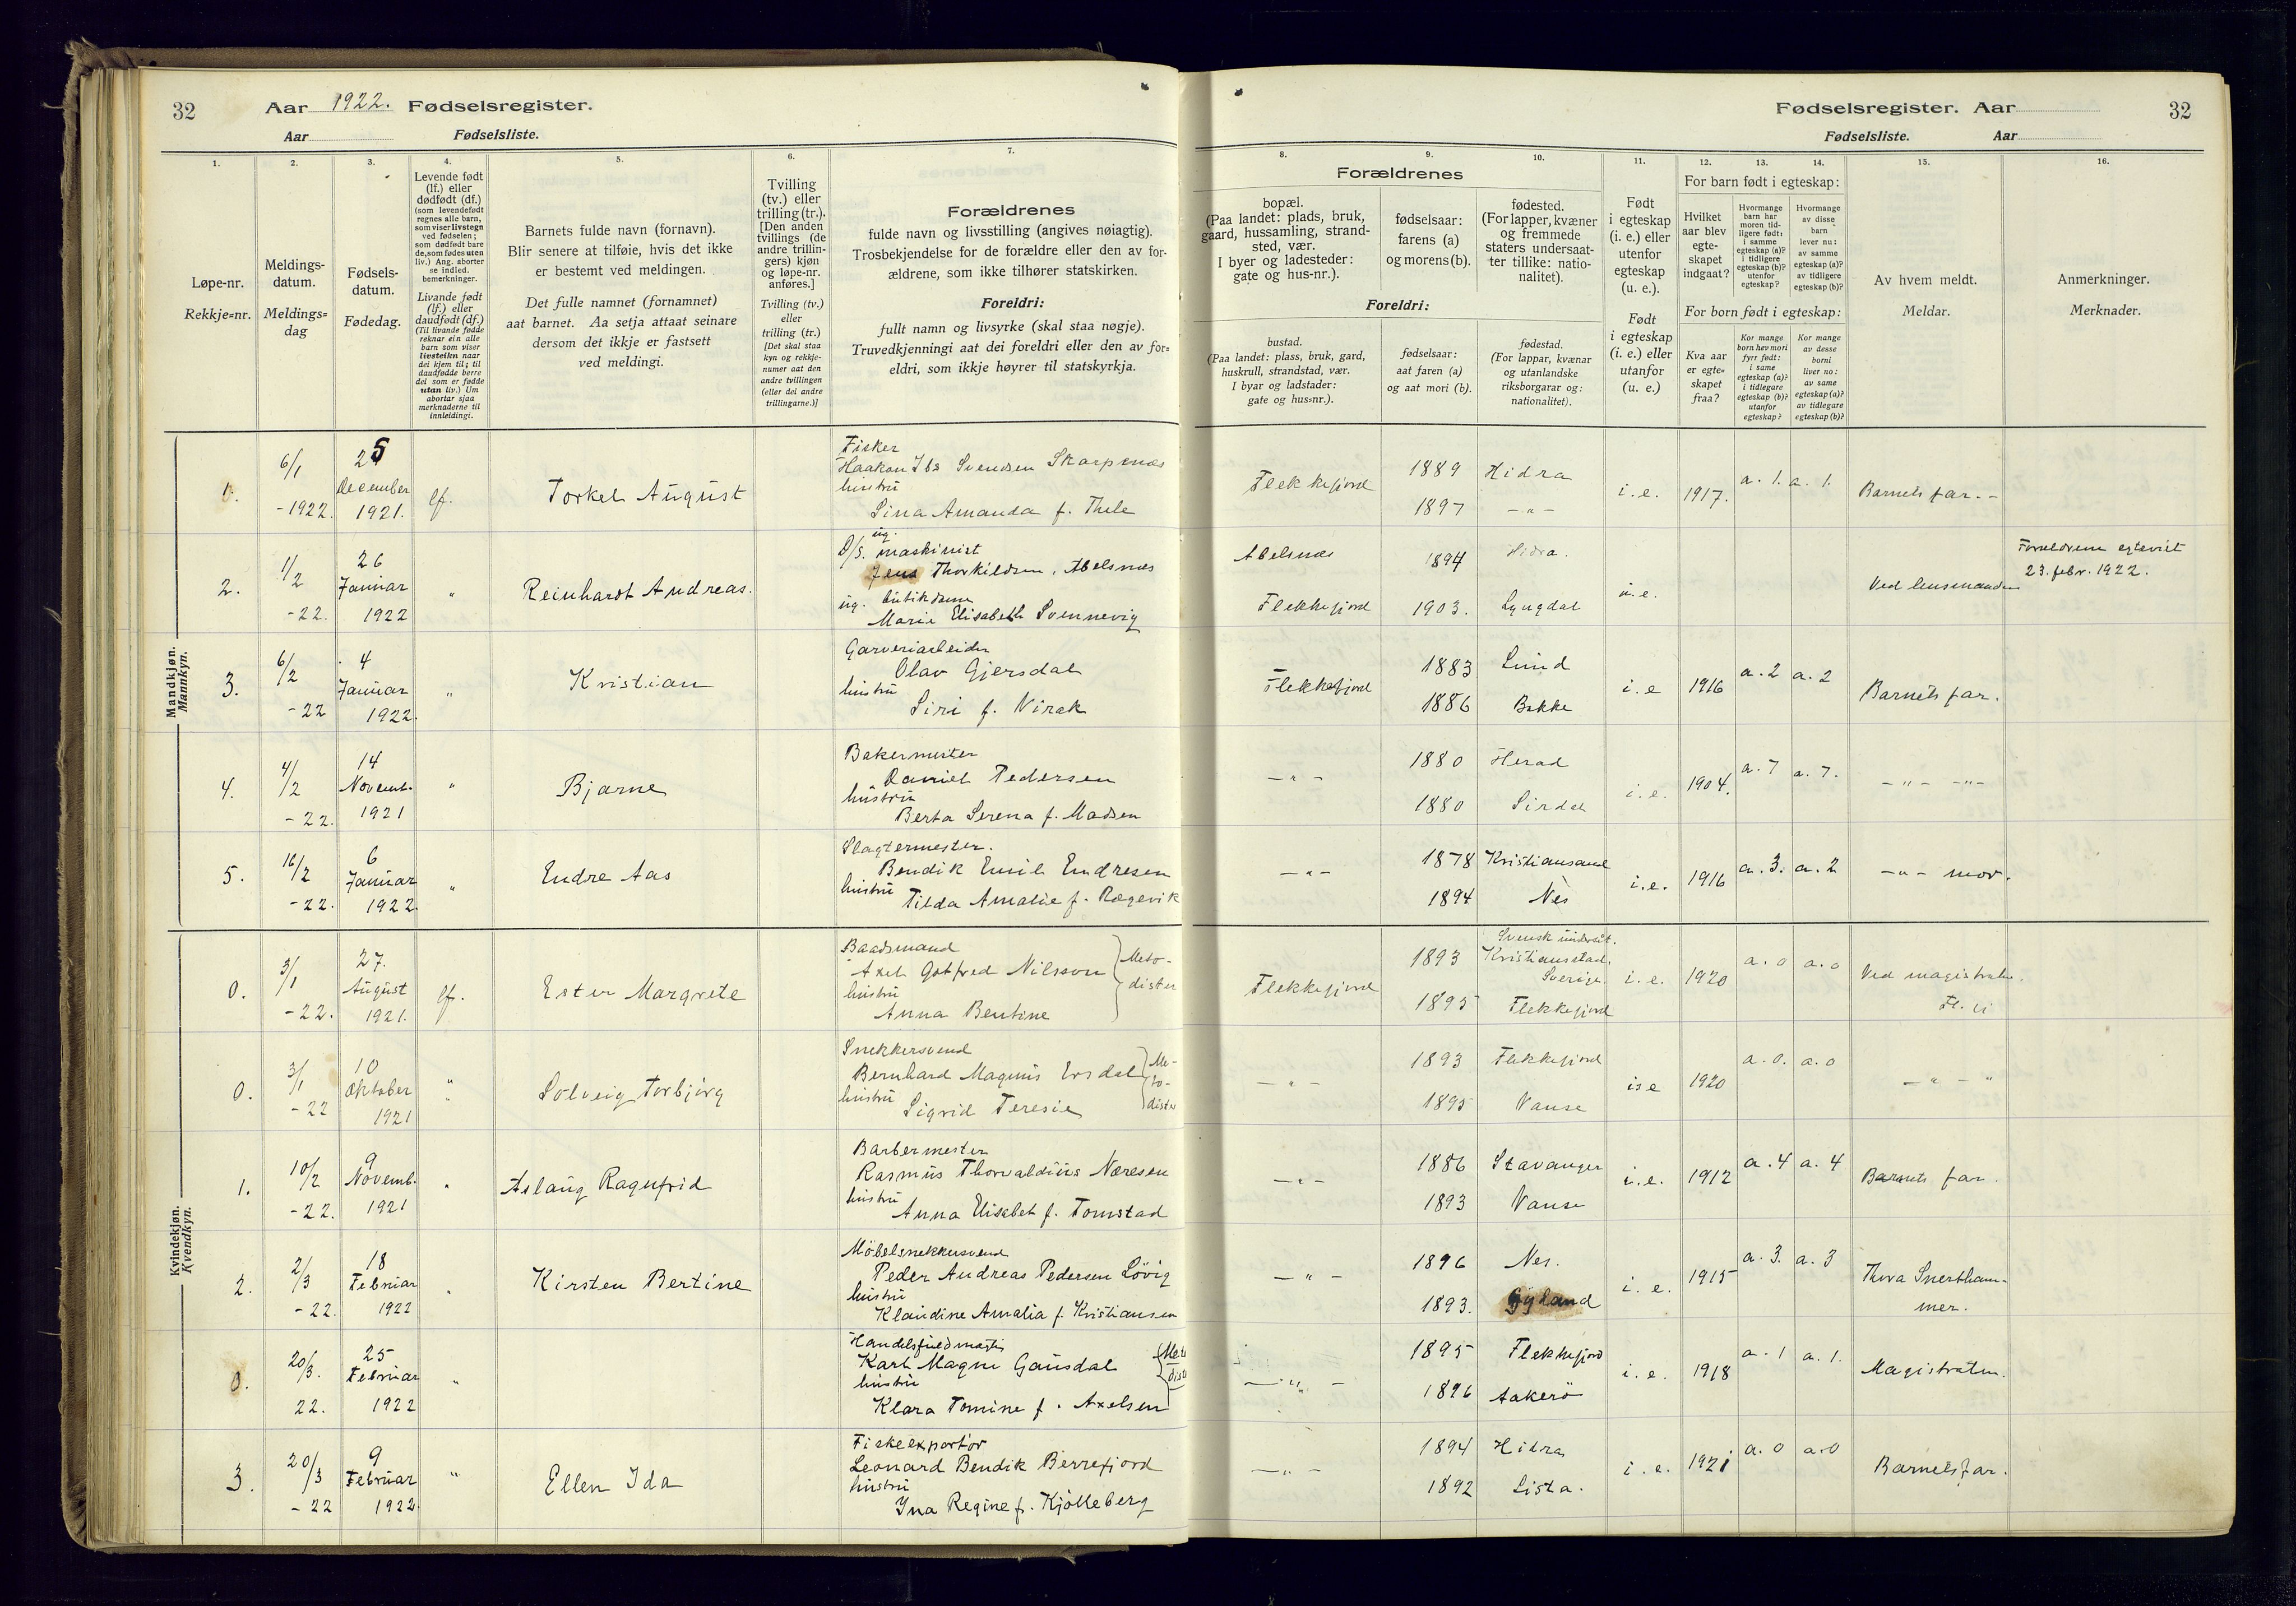 32 Aar 1922. Fødselsregister.
Aar Fødselsliste.
Fødselsregister. Aar 32
Fødselsliste. Aar
1. 2. 3. 4. 5. 6. 7.
Løpe-nr.
Rekkje=nr.
Meldings-
datum.
Meldings=
dag
Fødsels-
datum.
Fødedag.
Levende født
(lf.) eller
dødfødt (df.)
(som levendefødt
regnes alle barn,
som viser livstegn
ved fødselen;
som dødfødt bare
de, som fødes uten
liv.) Ang. aborter
se indled.
bemerkninger.
Livande født
(lf.) eller
daudfødt (df.)
(Til livande fødde
reknar ein alle
barn som viser
livsteikn naar
dei kjem til; til
daudfødde berre
dei som er fødde
utan liv.) Um
abortar sjaa
merknaderne til
innleidingi.
Barnets fulde navn (fornavn).
Blir senere at tilføie, hvis det ikke
er bestemt ved meldingen.
Det fulle namnet (fornamnet)
aat barnet. Aa setja attaat seinare
dersom det ikkje er fastsett
ved meldingi.
Tvilling
(tv.) eller
trilling (tr.).
[Den anden
tvillings (de
andre trillin-
gers) kjøn
og løpe-nr.
anføres.]
Tvilling (tv.)
eller
trilling (tr.)
[Det skal staa
kyn og rekkje-
numer aat den
andre tvillingen
(eller dei andre
trillingarne.)]
Forældrenes
fulde navn og livsstilling (angives nøiagtig).
Trosbekjendelse for de forældre eller den av for-
ældrene, som ikke tilhører statskirken.
Foreldri:
fullt namn og livsyrke (skal staa nøgje).
Truvedkjenningi aat dei foreldri eller den av for=
eldri, som ikkje høyrer til statskyrkja.
8. 9. 10. 11. 12. 13. 14. 15. 16.
Forældrenes
bopæl.
(Paa landet: plads, bruk,
gaard, hussamling, strand-
sted, vær.
I byer og ladesteder:
gate og hus-nr.).
fødselsaar:
farens (a)
og morens (b).
fødested.
(For lapper, kvæner
og fremmede
staters undersaat-
ter tillike: natio-
nalitet).
Foreldri:
bustad.
(Paa landet: plass, bruk, gard,
huskrull, strandstad, vær.
I byar og ladstader:
gate og hus=nr.).
fødselsaar:
aat faren (a)
og aat mori (b).
fødestad.
(For lappar, kvænar
og utanlandske
riksborgarar og:
nationalitet).
Født
i egteskap
(i. e.) eller
utenfor
egteskap
(u. e.).
Født
i egteskap
(i. e.) eller
utanfor
(u. e.)
For barn født i egteskap:
Hvilket
aar blev
egte-
skapet
indgaat?
Hvormange
barn har
moren tid-
ligere født:
i samme
egteskap (a)?
i tidligere
egteskap (b)?
utenfor
egteskap?
Hvormange
av disse
barn
lever nu:
av samme
egteskap (a)?
av tidligere
egteskap (b)?
For born født i egteskap:
Kva aar
er egte=
skapet
fraa?
Kor mange
born hev mori
fyrr født:
i same
egteskap (a)?
i tidlegare
egteskap (b)?
utanfor
egteskap?
Kor mange
av desse
borni
liver no:
av same
egteskap (a)?
av tidlegare
egteskap (b)?
Av hvem meldt.
Meldar.
Anmerkninger.
Merknader.
Mandkjøn.
Mannkyn.
1. 6/1 -1922. 25 December 1921. lf. Torkel August
Fisker
Haakon Ibs Svendsen Skarpenes
hustru
Sina Amanda f. Thele
Flekkefjord 1889 Hidra i.e. 1917. a. 1. a. 1. Barnets far. -
1897 - " -
2. 1/2 -22. 26 Januar 1922 " Reinhardt Andreas.
ug.
D/S. maskinist
Jens Thorkildsen, Abelsnes
ug. butikdame
Marie Elisabeth Svennevig
Abelsnes 1894 Hidra. u.e. Ved lensmanden
Flekkefjord 1903. Lyngdal
Forældrene egteviet
23. febr. 1922.
3. 6/2 -22 4 Januar 1922. " Kristian
Garveriarbeider
Olav Gjersdal
hustru
Siri f. Virak
Flekkefjord 1883 Lund i.e 1916 a. 2 a. 2 Barnets far.
1886 Bakke
4. 4/2 -22. 14 Novemb. 1921 " Bjarne
Bakermester
Daniel Pedersen
hustru
Berta Serena f. Madsen
- " - 1880 Herad i.e. 1904. a. 7 a. 7. - " - - " -
1880 Sirdal
5. 16/2 -22. 6 Januar 1922. " Endre Aas
Slagtermester.
Bendik Emil Endresen
hustru
Tilda Amalie f. Rægevik
- " - 1878 Kristiansand i.e. 1916 a. 3. a. 2 - " - mor.
1894 Nes
Kvindekjøn.
Kvendkyn.
0. 3/1 -22. 27. August 1921. lf. Ester Margrete
Baadsmand
Axel Gotfred Nilsson
hustru
Anna Bentine
Meto-
dister
Flekkefjord 1893 Svensk undersåt.
Kristiansstad,
Sverige i.e. 1920 a. 0 a. 0 Ved magistraten.
1895 Flekkefjord
0. 3/1 -22 10 Oktober 1921 " Solveig Torbjørg
Snekkersvend
Bernhard Magnus Ersdal
hustru
Sigrid Teresie
Me-
to-
dister
- " - 1893 Flekkefjord i e 1920 a. 0. a. 0 - " - "
1895 Vanse
1. 10/2 -22. 9 Novemb. 1921 " Aslaug Ragnfrid
Barbermester
Rasmus Thorvaldius Næresen
hustru
Anna Elisabet f. Tomstad
- " - 1886 Stavanger i.e. 1912 a. 4 a. 4 Barnets far.
1893 Vanse
2. 2/3 -22. 18 Februar 1922 " Kirsten Bertine
Möbelsnekkersvend
Peder Andreas Pedersen Lövig
hustru
Klaudine Amalia f. Kristiansen
- " - 1896 Nes. i. e. 1915 a. 3. a. 3 Thora Snertham-
mer.
1893. Gyland
0. 20/3. 22. 25 Februar 1922 "
Handelsfuldmægtig
Karl Magne Gausdal
hustru
Klara Tomine f. Axelsen
- " - 1895 Flekkefjord i. e. 1918 a. 1 a. 1. Magistraten.
1896 Aakerö
3. 20/3 -22 9 Februar 1922. " Ellen Ida
Fiskeexportör
Leonard Bendik Berrefjord
hustru
Ina Regine f. Kjölleberg
- " - 1894 Hidra i. e. 1921 a. 0 a. 0 Barnets far.
1892 Lista.